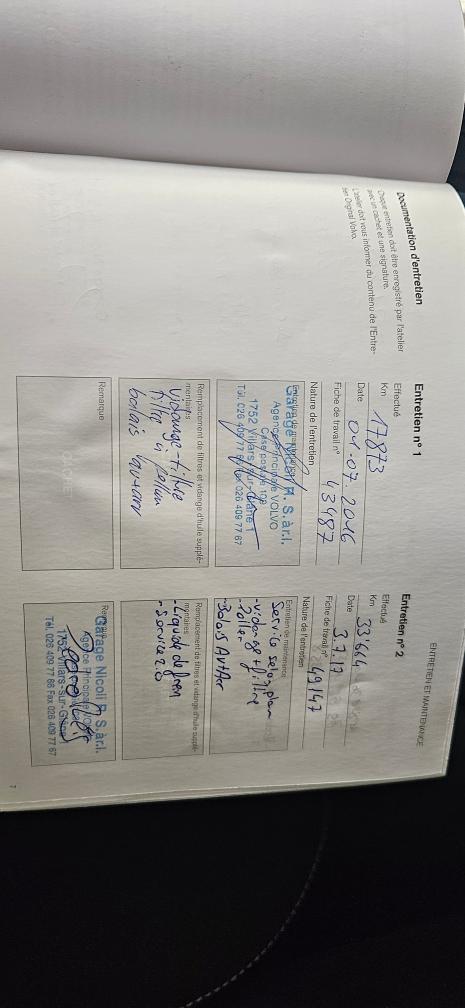 ENTRETIEN ET MAINTENANCE
Documentation d'entretien
Chaque entretien doit être enregistré par l'atelier
avec un cachet et une signature.
L'atelier doit vous informer du contenu de l'Entre-
tien Original Volvo.
Entretien n° 1
Effectué
Km 17873
Date 01.07.2016
Fiche de travail n° 43487
Nature de l'entretien
Garage Nicoli R. S.à.r.l.
Agence Principale VOLVO
Case postale 108
1752 Villars-sur-Glâne 1
Tél. 026 409 77 66 Fax 026 409 77 67
Remplacement de filtres et vidange d'huile supplé-
mentaires
Vidange + filtre
filtre à pollen
balais
Remarque
Entretien n° 2
Effectué
Km 33'644
Date 3.7.17
Fiche de travail n° 49147
Nature de l'entretien
Entretien de maintenance
Service selon plan
- vidange + filtre
- Pollen
- Balais AV + Arr
Remplacement de filtres et vidange d'huile supplé-
mentaires
- Liquide de frein
- Service 2.0
Garage Nicoli R. S.à.r.l.
Agence Principale VOLVO
1752 Villars-sur-Glâne 1
Tél. 026 409 77 66 Fax 026 409 77 67
7